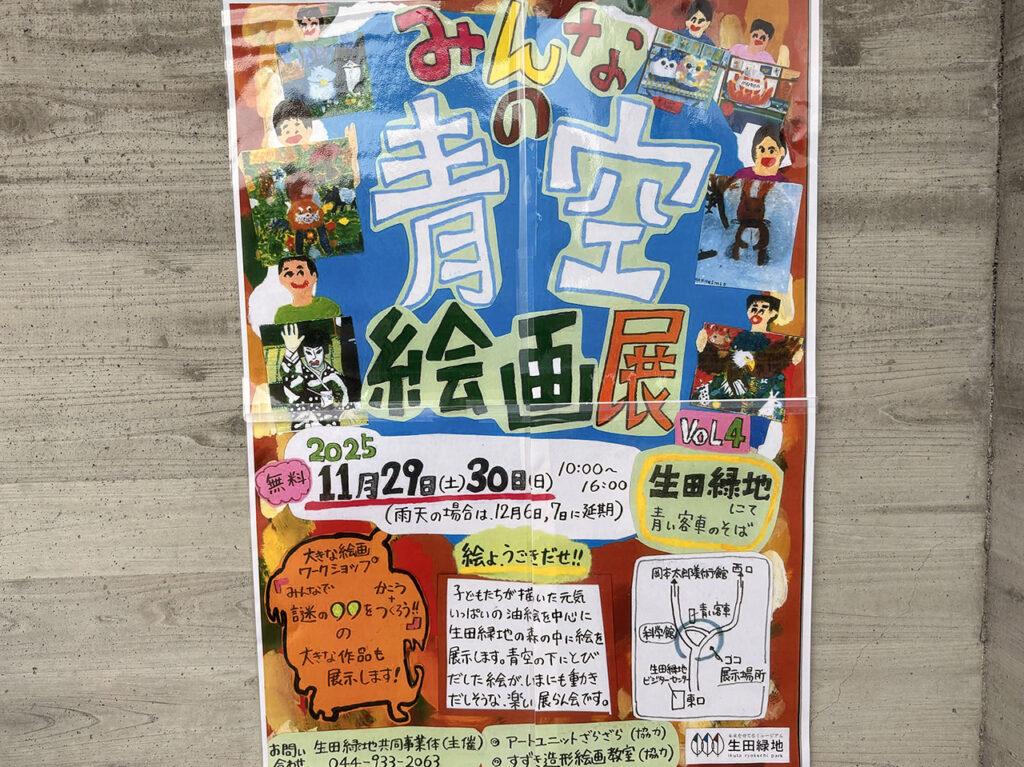 みんな
の
青空
絵画展
VOL4
2025
無料
11月29日(土)30日(日)
10:00〜
16:00
(雨天の場合は、12月6日,7日に延期)
生田緑地
にて
青い客車のそば
大きな絵画
ワークショップ。
『みんなで かこう
+
謎の○○をつくろう!!』
の
大きな作品も
展示します!
絵よ、うごきだせ!!
子どもたちが描いた元気
いっぱいの油絵を中心に
生田緑地の森の中に絵を
展示します。青空の下にとび
だした絵が、いまにも動き
だしそうな、楽しい展らん会です。
岡本太郎美術館
西口
青い客車
科学館
ココ
展示場所
生田緑地
ビジターセンター
東口
お問い
合わせ
生田緑地共同事業体(主催)
044-933-2063
◎アートユニットざらざら(協力)
◎すずき造形絵画教室(協力)
生田緑地
ikuta ryokuchi park